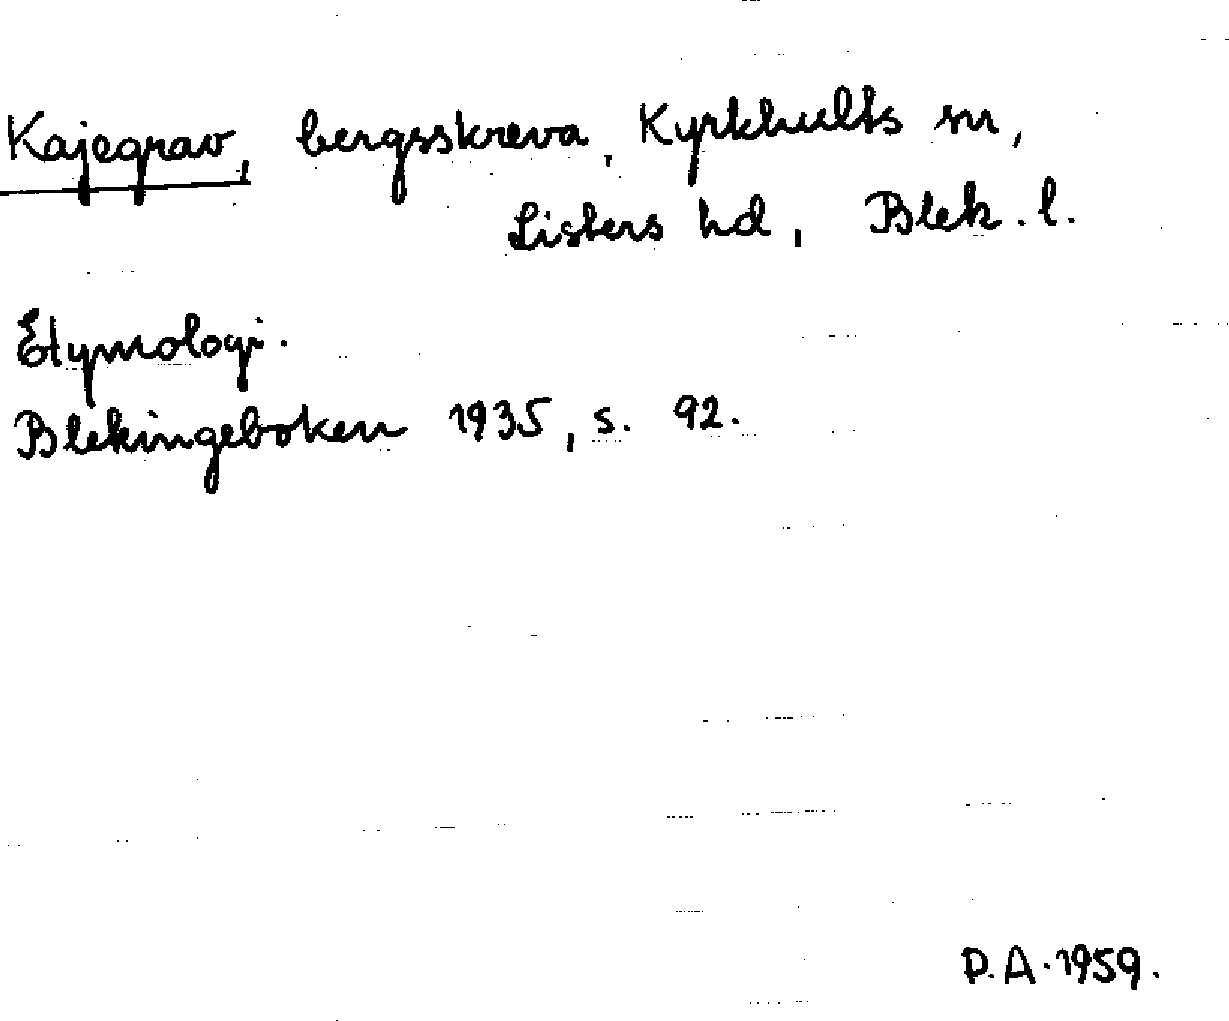 Kajegrav, bergsskreva, Kyrkhults sn,
Listers hd, Blek. l.
Etymologi.
Blekingeboken 1935, s. 92.
D.A. 1959.